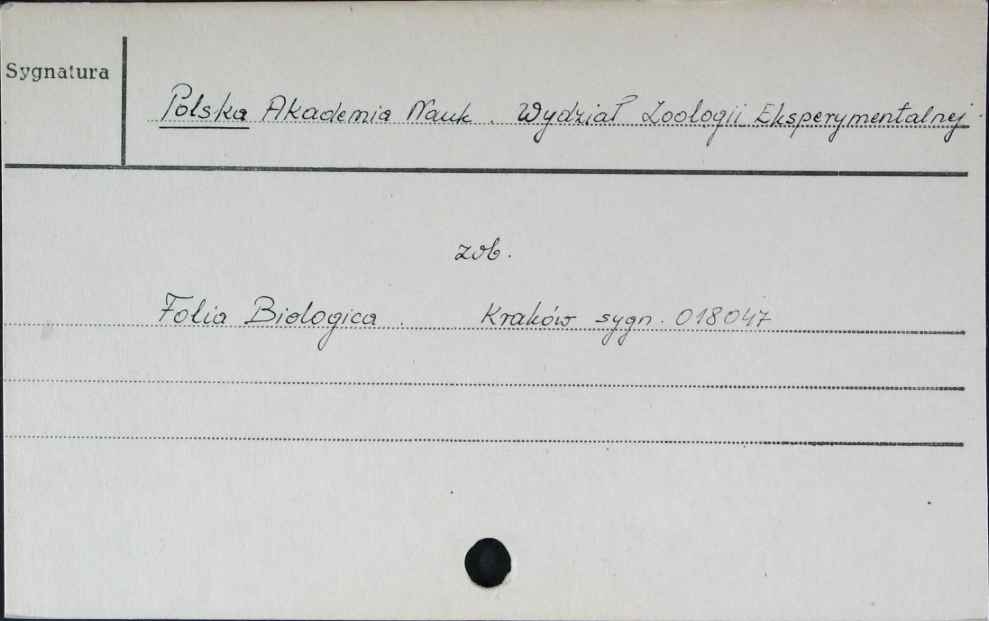 Sygnatura
Polska Akademia Nauk. Wydział Zoologii Eksperymentalnej
zob.
Folia Biologica. Kraków sygn. 018047